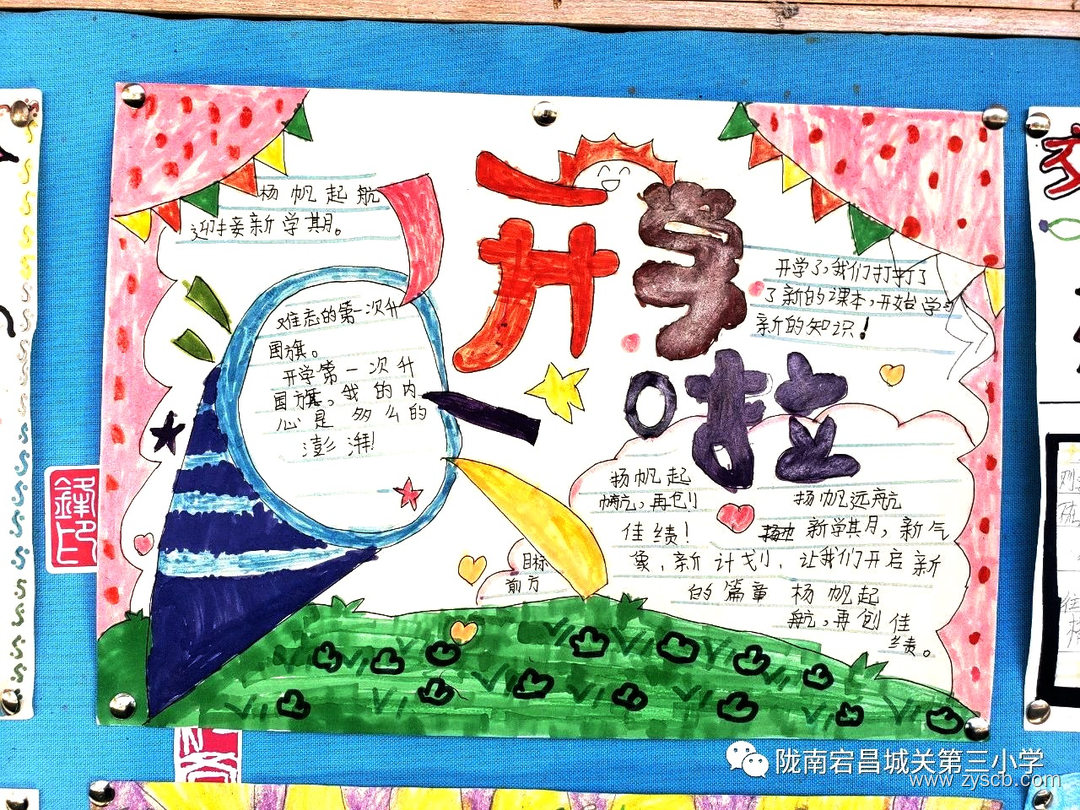 杨帆起航
迎接新学期。
开学啦
难忘的第一次升
国旗。
开学第一次升
国旗。我的内
心是多么的
澎湃!
开学了,我们打打了
了新的课本,开始学习
新的知识!
杨帆起
航,再创
佳绩!
目标
前方
杨帆远航
新学期,新气
象,新计划,让我们开启新
的篇章 杨帆起
航,再创佳
绩。
陇南宕昌城关第三小学
www.zyscb.com